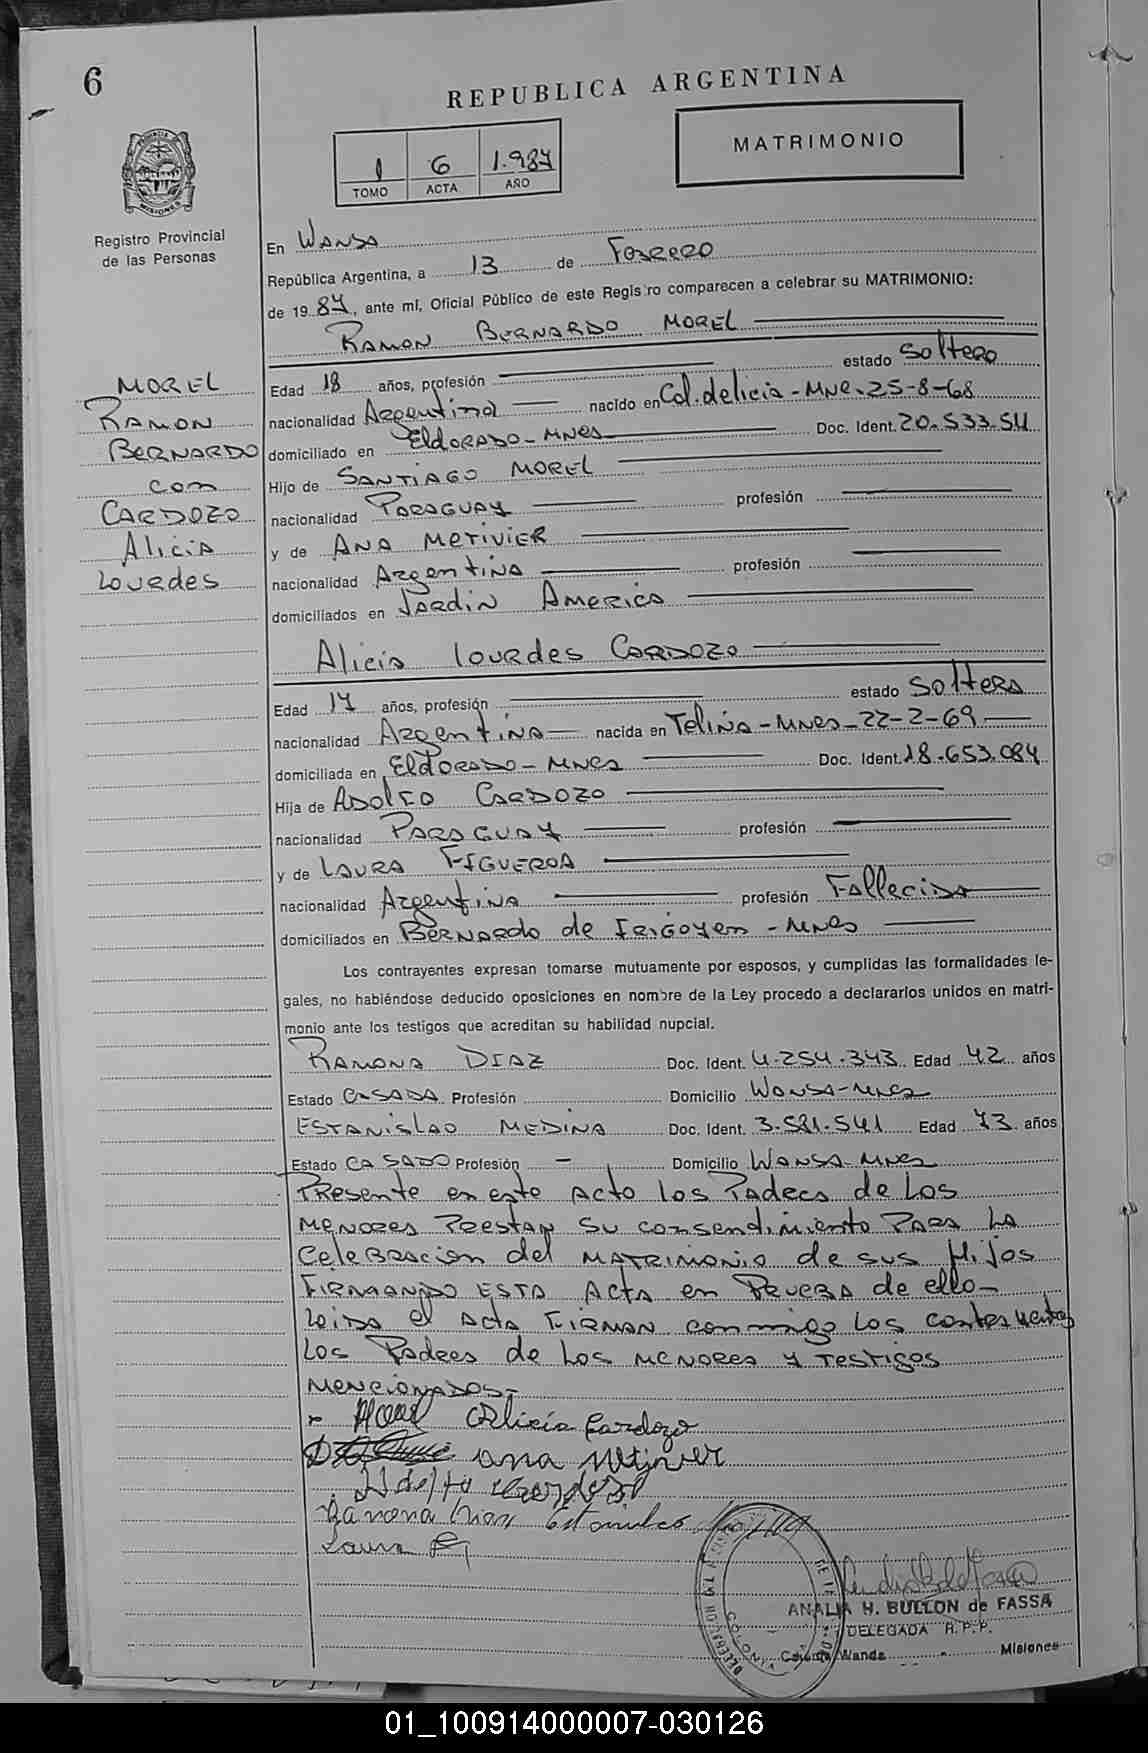 6
REPUBLICA ARGENTINA
MATRIMONIO
1 6 1.987
TOMO ACTA AÑO
Registro Provincial
de las Personas
En WANDA
República Argentina, a 13 de FEBRERO
de 1987, ante mí, Oficial Público de este Registro comparecen a celebrar su MATRIMONIO:
RAMON BERNARDO MOREL
MOREL
RAMON
BERNARDO
con
CARDOZO
Alicia
Lourdes
Edad 18 años, profesión estado Soltero
nacionalidad Argentina nacido en Col. delicia - Mnes. 25-8-68
domiciliado en ElDORADO - MNES Doc. Ident. 20.533.511
Hijo de SANTIAGO MOREL
nacionalidad PARAGUAY profesión
y de ANA METIVIER
nacionalidad Argentina profesión
domiciliados en JARDIN AMERICA
Alicia Lourdes CARDOZO
Edad 17 años, profesión estado Soltera
nacionalidad Argentina nacida en - Mnes - 22-2-69
domiciliada en ElDORADO - MNES Doc. Ident. 18.653.084
Hija de ADOLFO CARDOZO
nacionalidad PARAGUAY profesión
y de LAURA FIGUEROA
nacionalidad Argentina profesión Fallecida
domiciliados en BERNARDO de IRIGOYEN - MNES
Los contrayentes expresan tomarse mutuamente por esposos, y cumplidas las formalidades le-
gales, no habiéndose deducido oposiciones en nombre de la Ley procedo a declararlos unidos en matri-
monio ante los testigos que acreditan su habilidad nupcial.
RAMONA DIAZ Doc. Ident. 4.254.343 Edad 42 años
Estado CASADA Profesión Domicilio WANDA - MNES
ESTANISLAO MEDINA Doc. Ident. 3.581.541 Edad 73 años
Estado CASADO Profesión - Domicilio WANDA - MNES
PResente en este Acto los Padres de Los
MENORES PRESTAN Su consendimiento PARA LA
CeleBRACION del MATRIMONIO de sus Hijos
FIRMANDO ESTA Acta en PRUEBA de ello-
Leida el Acta FIRMAN conmigo Los contrayentes
Los Padres de Los MENORES y Testigos
MENCIONADOS-
Morel Alicia Cardozo
ana Metivier
Adolfo Cardozo
Ramona Diaz Estanislao
Laura
ANALIA H. BULLON de FASSA
DELEGADA R.P.P.
Colonia Wanda Misiones
01_100914000007-030126